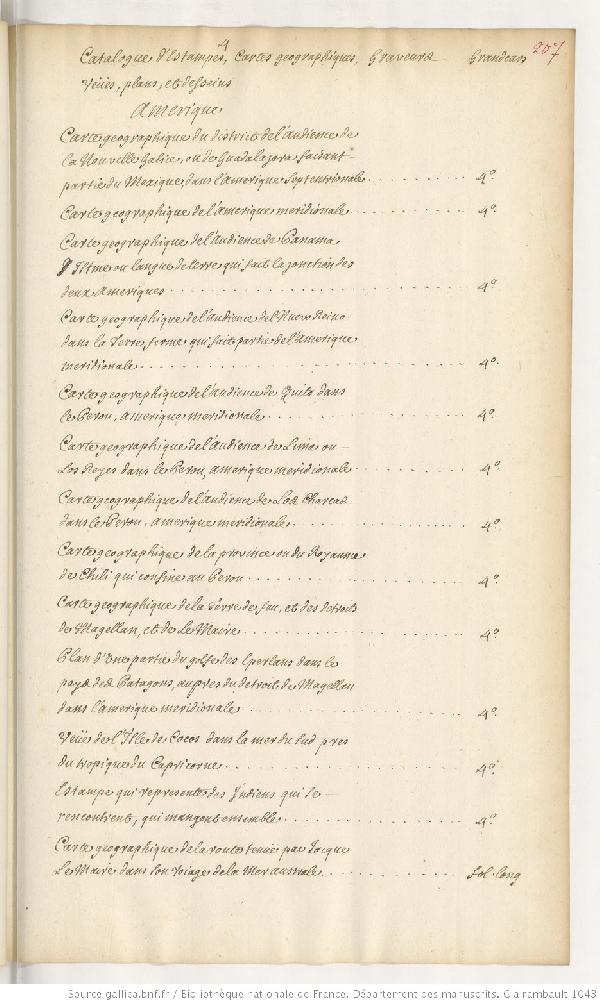 4
207
Catalogue d'Estampes, Cartes geographiques, Graveurs Grandeurs
Veües, plans, et desseins
Amerique
Carte geographique du district de l'audience de
la Nouvelle Galice, ou de Guadalajara faisant
partie du Mexique dans l'Amerique Septentrionale 4º.
Carte geographique de l'amerique meridionale 4º.
Carte geographique de l'audience de Panama
Istme ou langue de terre qui fait la jonction des
deux Ameriques 4º.
Carte geographique de l'audience del Nuevo Reino
dans la Terre ferme qui fait partie de l'Amerique
meridionale 4º.
Carte geographique de l'audience de Quito dans
le Perou, amerique meridionale 4º.
Carte geographique de l'audience de Lima ou
Los Reyes dans le Perou, amerique meridionale 4º.
Carte geographique de l'audience de Los Charcas
dans le Perou, amerique meridionale 4º.
Carte geographique de la province ou du Royaume
de Chili qui confine au Perou 4º.
Carte geographique de la Terre de feu, et des detroits
de Magellan, et de Le Maire 4º.
Plan d'Une partie du golfe des Eperlans dans le
pays des Patagons, aupres du detroit de Magellan
dans l'amerique meridionale 4º.
Veüe de l'Isle de Cocos dans la mer du Sud pres
du tropique du Capricorne 4º.
Estampe qui represente des Indiens qui se
rencontrent, qui mangent ensemble 4º.
Carte geographique de la route tenue par Jacque
Le Maire dans son voiage de la Mer australe fol. long
Source gallica.bnf.fr / Bibliothèque nationale de France. Département des manuscrits. Clairambault 1043